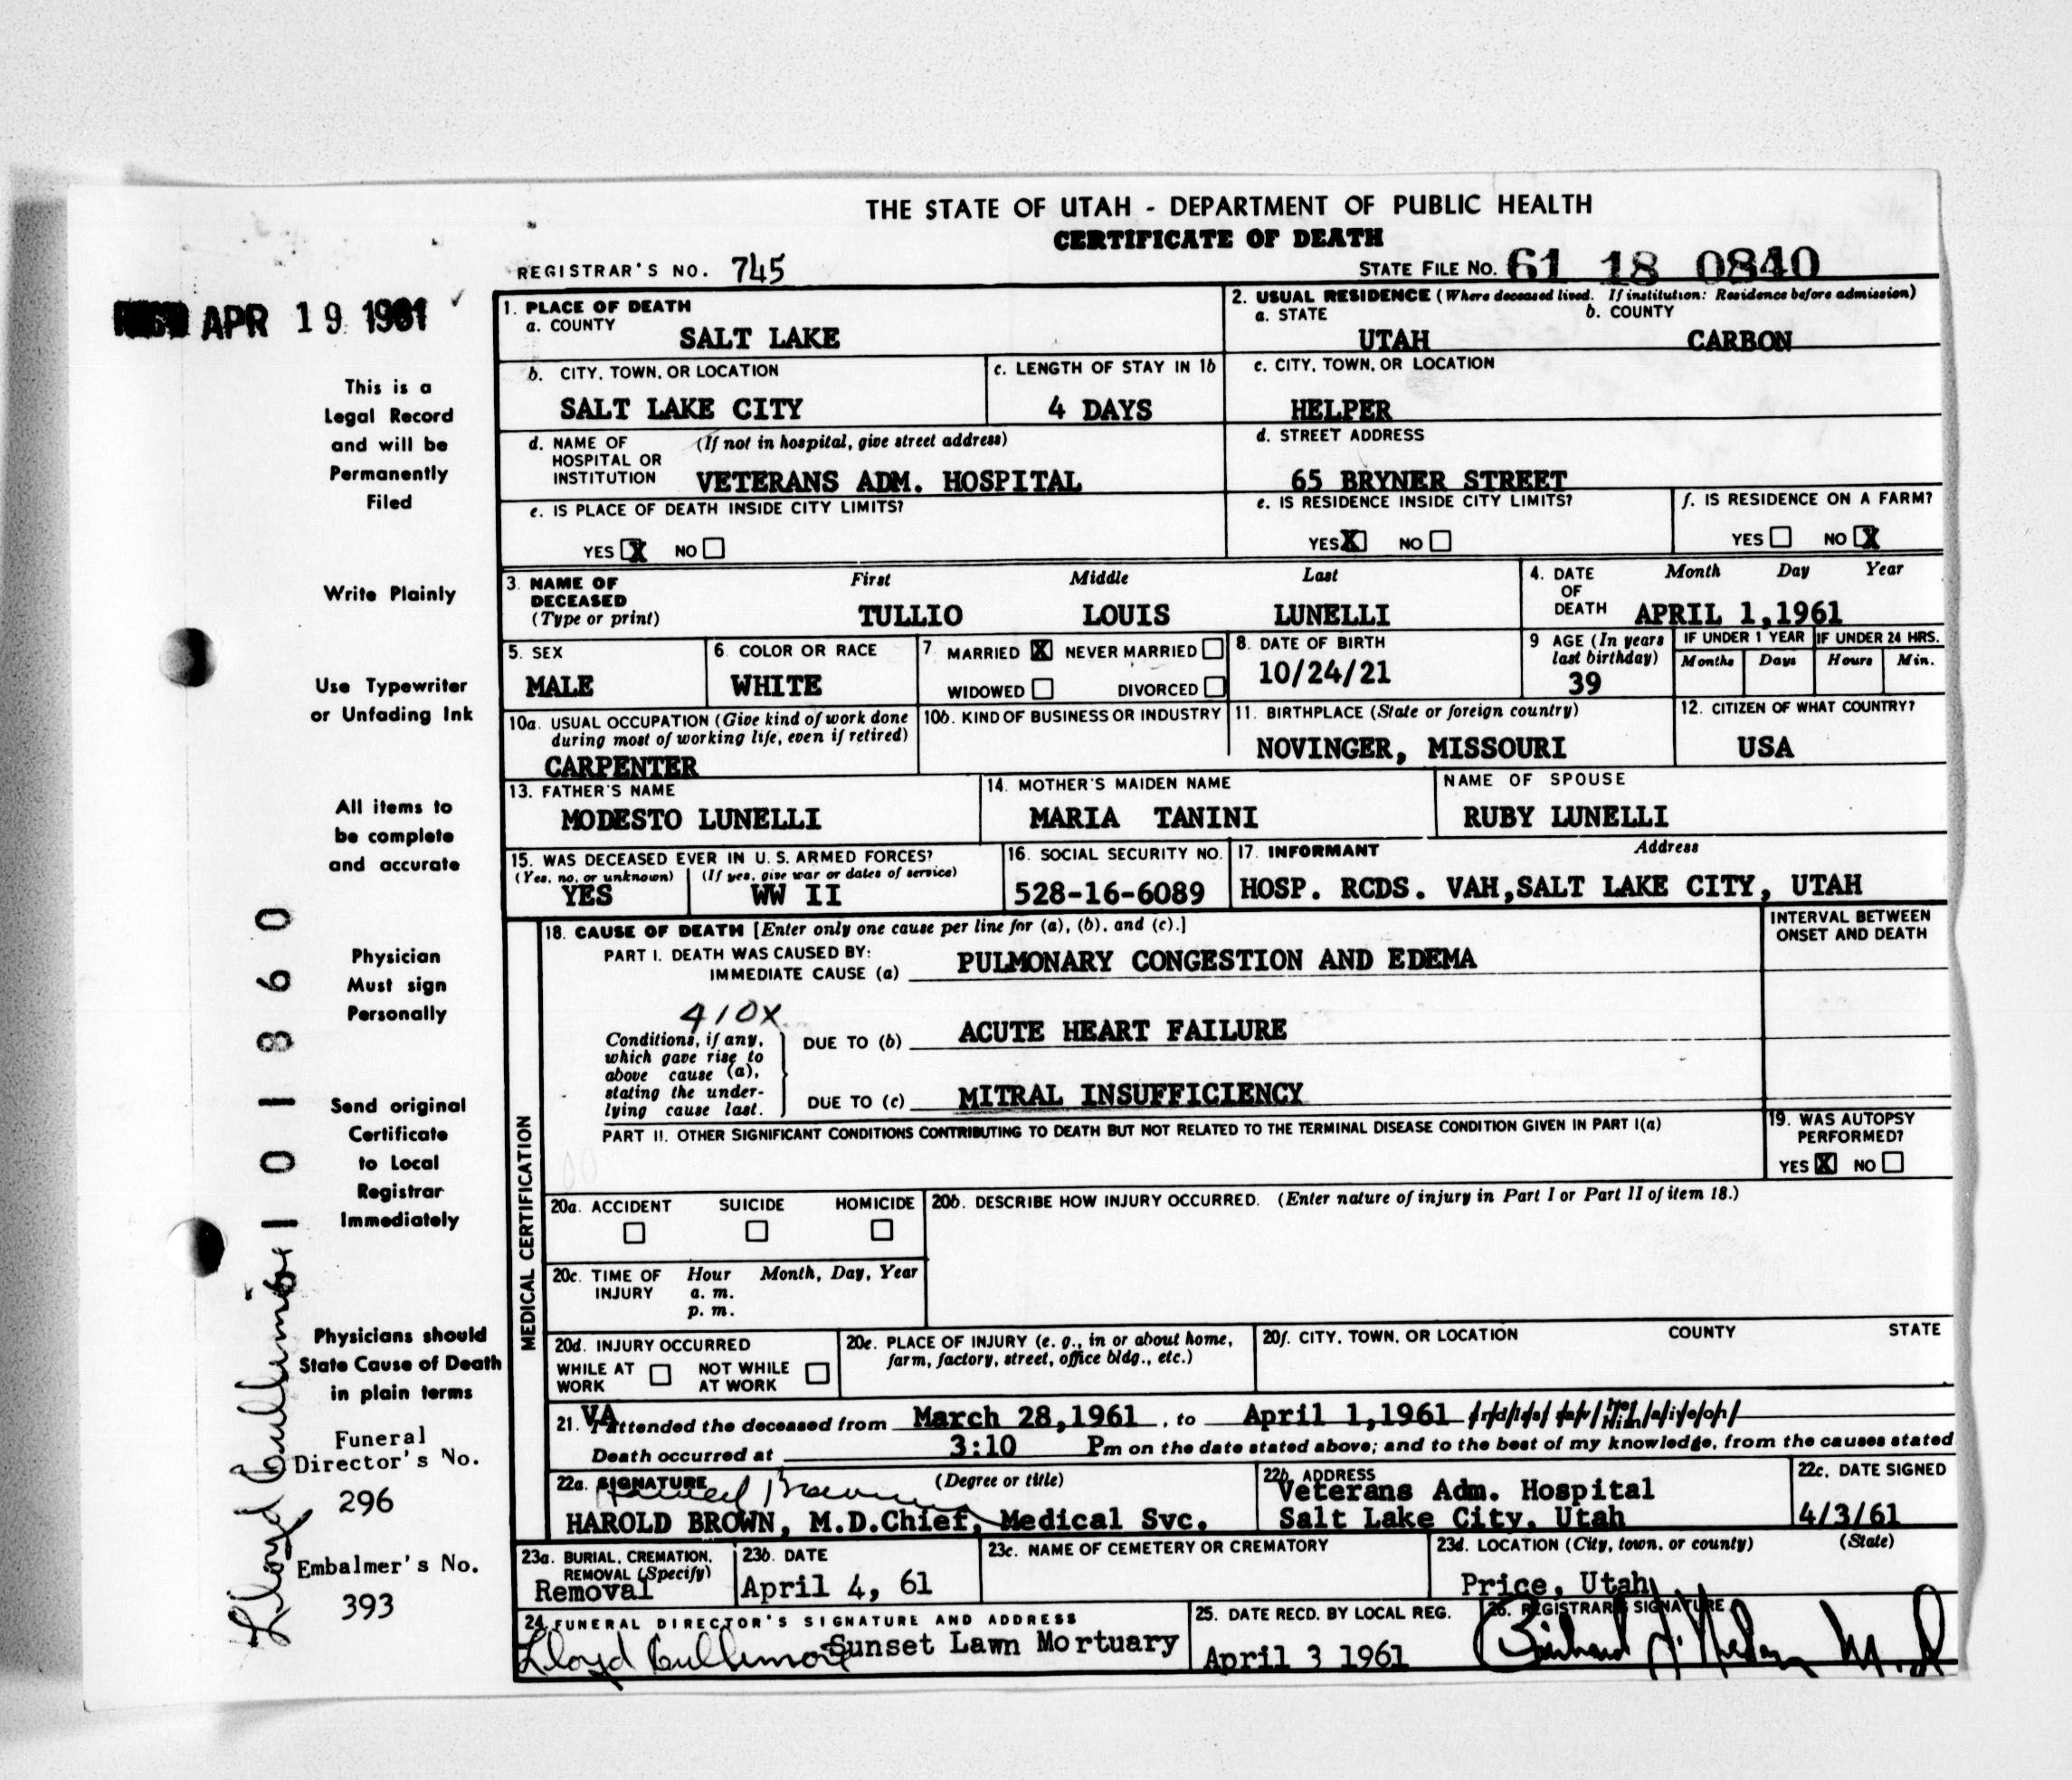 THE STATE OF UTAH - DEPARTMENT OF PUBLIC HEALTH
CERTIFICATE OF DEATH
REGISTRAR'S NO. 745
STATE FILE NO. 61 18 0840
APR 19 1961
This is a
Legal Record
and will be
Permanently
Filed
Write Plainly
Use Typewriter
or Unfading Ink
All items to
be complete
and accurate
Physician
Must sign
Personally
Send original
Certificate
to Local
Registrar
Immediately
Physicians should
State Cause of Death
in plain terms
Funeral
Director's No.
296
Embalmer's No.
393
Lloyd Cullimore 1101860
1. PLACE OF DEATH
a. COUNTY
SALT LAKE
2. USUAL RESIDENCE (Where deceased lived. If institution: Residence before admission)
a. STATE b. COUNTY
UTAH CARBON
b. CITY, TOWN, OR LOCATION
SALT LAKE CITY
c. LENGTH OF STAY IN 1b
4 DAYS
c. CITY, TOWN, OR LOCATION
HELPER
d. NAME OF (If not in hospital, give street address)
HOSPITAL OR
INSTITUTION VETERANS ADM. HOSPITAL
d. STREET ADDRESS
65 BRYNER STREET
e. IS PLACE OF DEATH INSIDE CITY LIMITS?
YES X NO
e. IS RESIDENCE INSIDE CITY LIMITS?
YES X NO
f. IS RESIDENCE ON A FARM?
YES NO X
3. NAME OF First Middle Last
DECEASED
(Type or print) TULLIO LOUIS LUNELLI
4. DATE Month Day Year
OF
DEATH APRIL 1,1961
5. SEX
MALE
6. COLOR OR RACE
WHITE
7. MARRIED X NEVER MARRIED
WIDOWED DIVORCED
8. DATE OF BIRTH
10/24/21
9 AGE (In years
last birthday)
39
IF UNDER 1 YEAR IF UNDER 24 HRS.
Months Days Hours Min.
10a. USUAL OCCUPATION (Give kind of work done
during most of working life, even if retired)
CARPENTER
10b. KIND OF BUSINESS OR INDUSTRY
11. BIRTHPLACE (State or foreign country)
NOVINGER, MISSOURI
12. CITIZEN OF WHAT COUNTRY?
USA
13. FATHER'S NAME
MODESTO LUNELLI
14. MOTHER'S MAIDEN NAME
MARIA TANINI
NAME OF SPOUSE
RUBY LUNELLI
15. WAS DECEASED EVER IN U. S. ARMED FORCES?
(Yes, no, or unknown) (If yes, give war or dates of service)
YES WW II
16. SOCIAL SECURITY NO.
528-16-6089
17. INFORMANT Address
HOSP. RCDS. VAH,SALT LAKE CITY, UTAH
MEDICAL CERTIFICATION
18. CAUSE OF DEATH [Enter only one cause per line for (a), (b), and (c).]
INTERVAL BETWEEN
ONSET AND DEATH
PART I. DEATH WAS CAUSED BY:
IMMEDIATE CAUSE (a) PULMONARY CONGESTION AND EDEMA
410X
Conditions, if any,
which gave rise to
above cause (a),
stating the under-
lying cause last.
DUE TO (b) ACUTE HEART FAILURE
DUE TO (c) MITRAL INSUFFICIENCY
PART II. OTHER SIGNIFICANT CONDITIONS CONTRIBUTING TO DEATH BUT NOT RELATED TO THE TERMINAL DISEASE CONDITION GIVEN IN PART I(a)
19. WAS AUTOPSY
PERFORMED?
YES X NO
20a. ACCIDENT SUICIDE HOMICIDE
20b. DESCRIBE HOW INJURY OCCURRED. (Enter nature of injury in Part I or Part II of item 18.)
20c. TIME OF Hour Month, Day, Year
INJURY a. m.
p. m.
20d. INJURY OCCURRED
WHILE AT NOT WHILE
WORK AT WORK
20e. PLACE OF INJURY (e. g., in or about home,
farm, factory, street, office bldg., etc.)
20f. CITY, TOWN, OR LOCATION COUNTY STATE
21. VA attended the deceased from March 28,1961, to April 1,1961
Death occurred at 3:10 Pm on the date stated above; and to the best of my knowledge, from the causes stated
22a. SIGNATURE (Degree or title)
Harold Brown
HAROLD BROWN, M.D.Chief, Medical Svc.
22b. ADDRESS
Veterans Adm. Hospital
Salt Lake City, Utah
22c. DATE SIGNED
4/3/61
23a. BURIAL, CREMATION,
REMOVAL (Specify)
Removal
23b. DATE
April 4, 61
23c. NAME OF CEMETERY OR CREMATORY
23d. LOCATION (City, town, or county) (State)
Price, Utah
24. FUNERAL DIRECTOR'S SIGNATURE AND ADDRESS
Lloyd Cullimore Sunset Lawn Mortuary
25. DATE RECD. BY LOCAL REG.
April 3 1961
26. REGISTRAR'S SIGNATURE